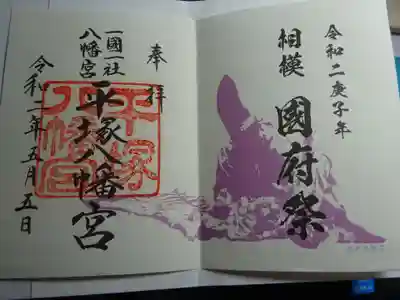 令和二庚子年
相模 國府祭
奉拝
一國一社
八幡宮
平塚八幡宮
平塚
八幡宮
令和二年五月五日